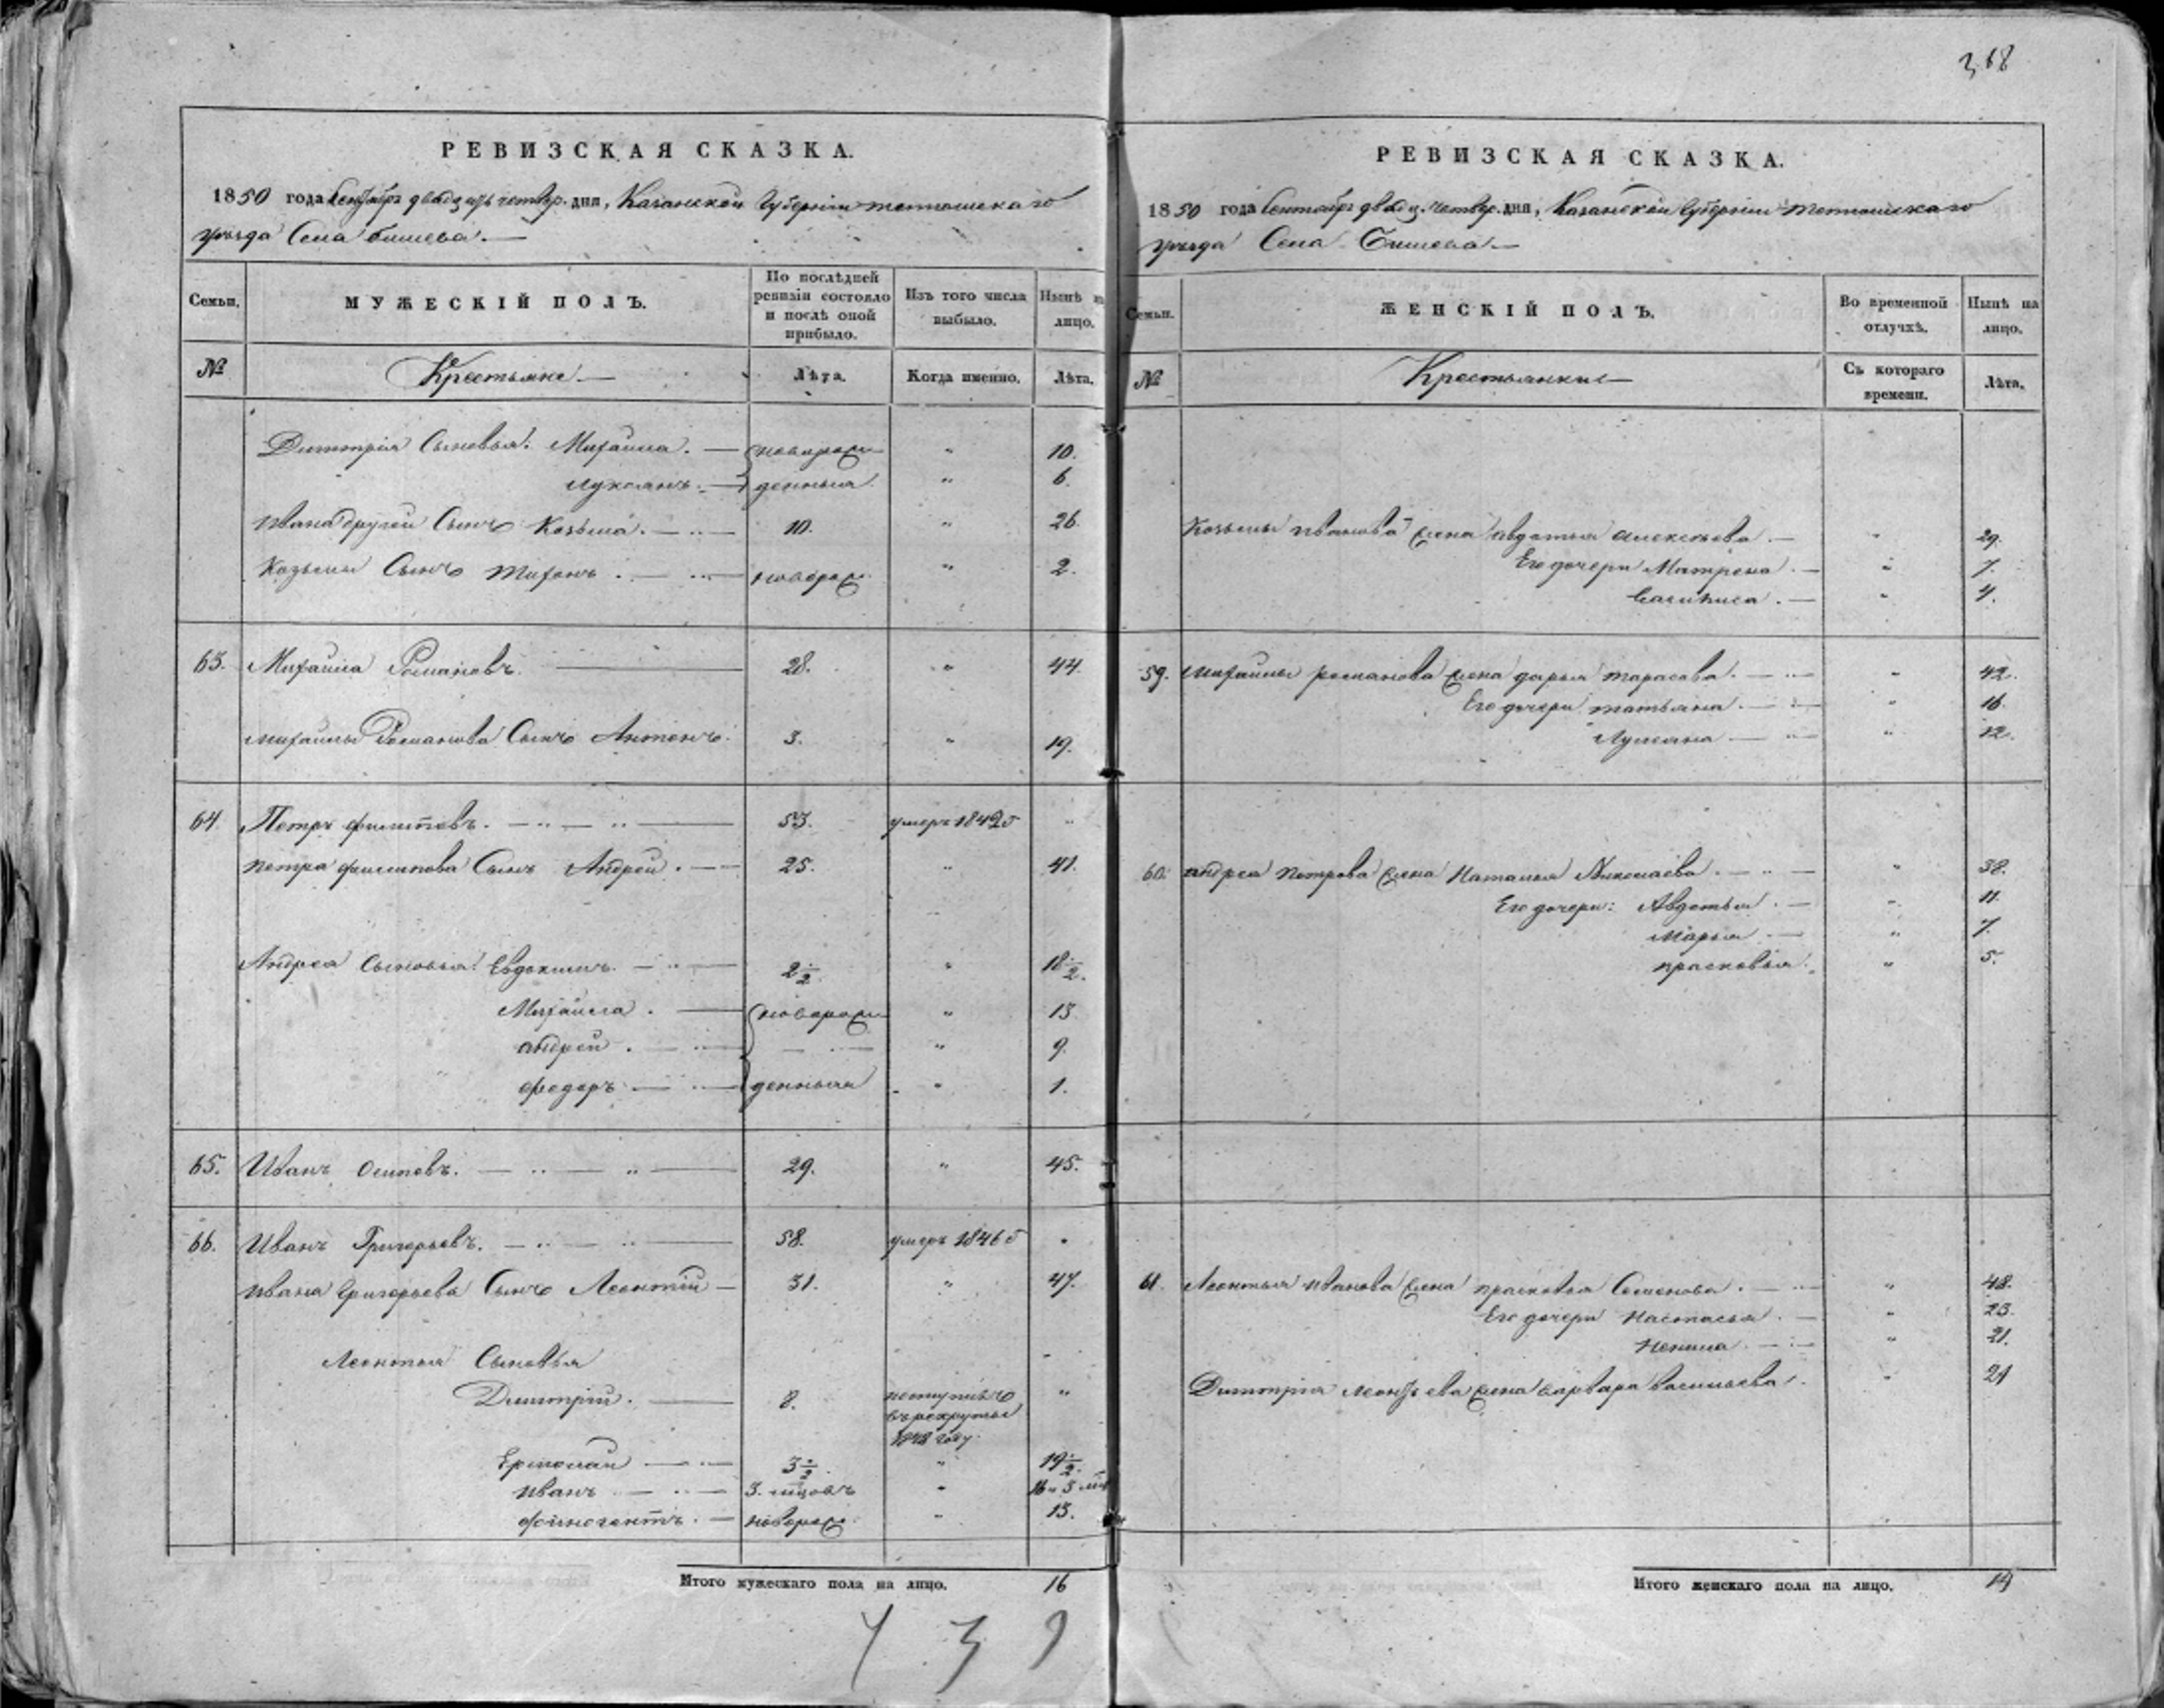 368
РЕВИЗСКАЯ СКАЗКА.
1850 года Сентября двадцать четвер. дня, Казанской Губернiи тетюшскаго
уѣзда Села бишева.
Семьи.
МУЖЕСКIЙ ПОЛЪ.
По послѣдней ревизiи состояло и послѣ оной прибыло.
Изъ того числа выбыло.
Нынѣ на лицо.
№
Крестьяне
Лѣта.
Когда именно.
Лѣта.
Дмитрiя Сыновья: Михайла. новорож 10.
Лукоянъ. денныя 6.
Ивана другой Сынъ Козьма. 10. " 26.
Козьмы Сынъ Тихонъ. новорож. " 2.
63. Михайла Романовъ. 28. " 44.
Михайлы Романова Сынъ Антонъ. 3. " 19.
64. Петръ филиповъ. 53. умеръ 1842 "
Петра филипова Сынъ Андрей. 25. " 41.
Андрея Сыновья: Евдокимъ. 2 1/2. " 18 1/2.
Михайла. новорож " 13
андрей. " 9.
федоръ денныя " 1.
65. Иванъ Осиповъ. 29. " 45.
66. Иванъ Григорьевъ. 58. умеръ 1846 "
Ивана Григорьева Сынъ Леонтiй 31. " 47.
Леонтья Сыновья
Димитрiй. 8. поступилъ "
въ рекруты
году
Ермолай 3 1/2. " 19 1/2.
Иванъ 3. мцовъ " 16 и 3
новорож. " 13.
Итого мужескаго пола на лицо. 16
4 3 9
РЕВИЗСКАЯ СКАЗКА.
1850 года Сентября двадц. четвер. дня, Казанской Губернiи тетюшскаго
уѣзда Села Бишева
Семьи.
ЖЕНСКIЙ ПОЛЪ.
Во временной отлучкѣ.
Нынѣ на лицо.
№
Крестьянки
Съ котораго времени.
Лѣта.
Козьмы Иванова жена авдотья алексѣева. " 29.
Его дочери Матрена. " 7.
Василиса. " 4.
59. Михайлы романова жена дарья тарасова. " 42.
Его дочери татьяна. " 16.
" 12.
60. андрея Петрова жена Наталья Николаева. " 38.
Его дочери: Авдотья. " 11.
Марья " 7.
прасковья. " 5.
61. Леонтья Иванова жена прасковья Семенова. " 48.
Его дочери Настасья. " 23.
Ненила. " 21.
Димитрiя Леонтьева жена варвара васильева. " 21
Итого женскаго пола на лицо. 14